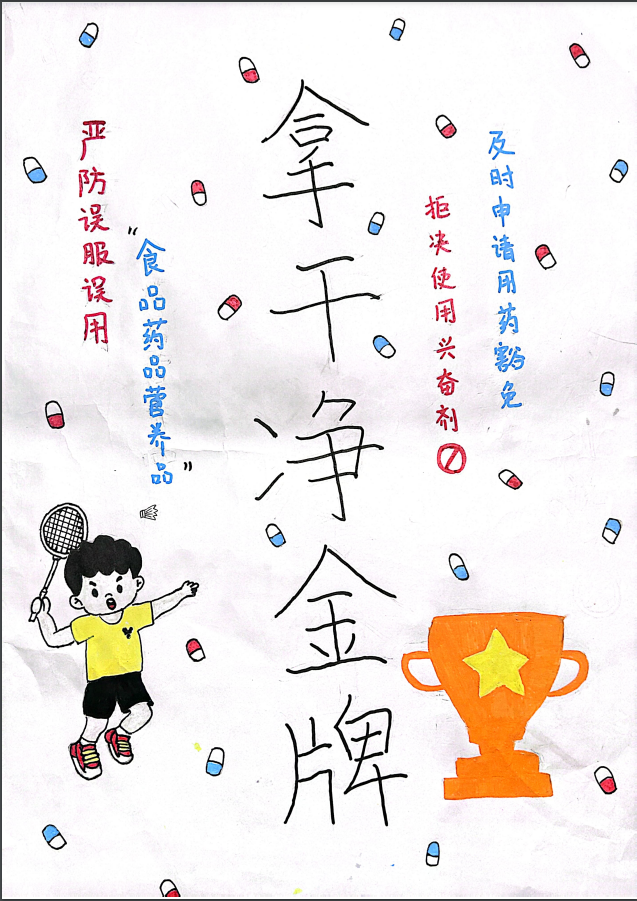 严防误服误用
"食品药品营养品"
拿干净金牌
拒决使用兴奋剂
及时申请用药豁免